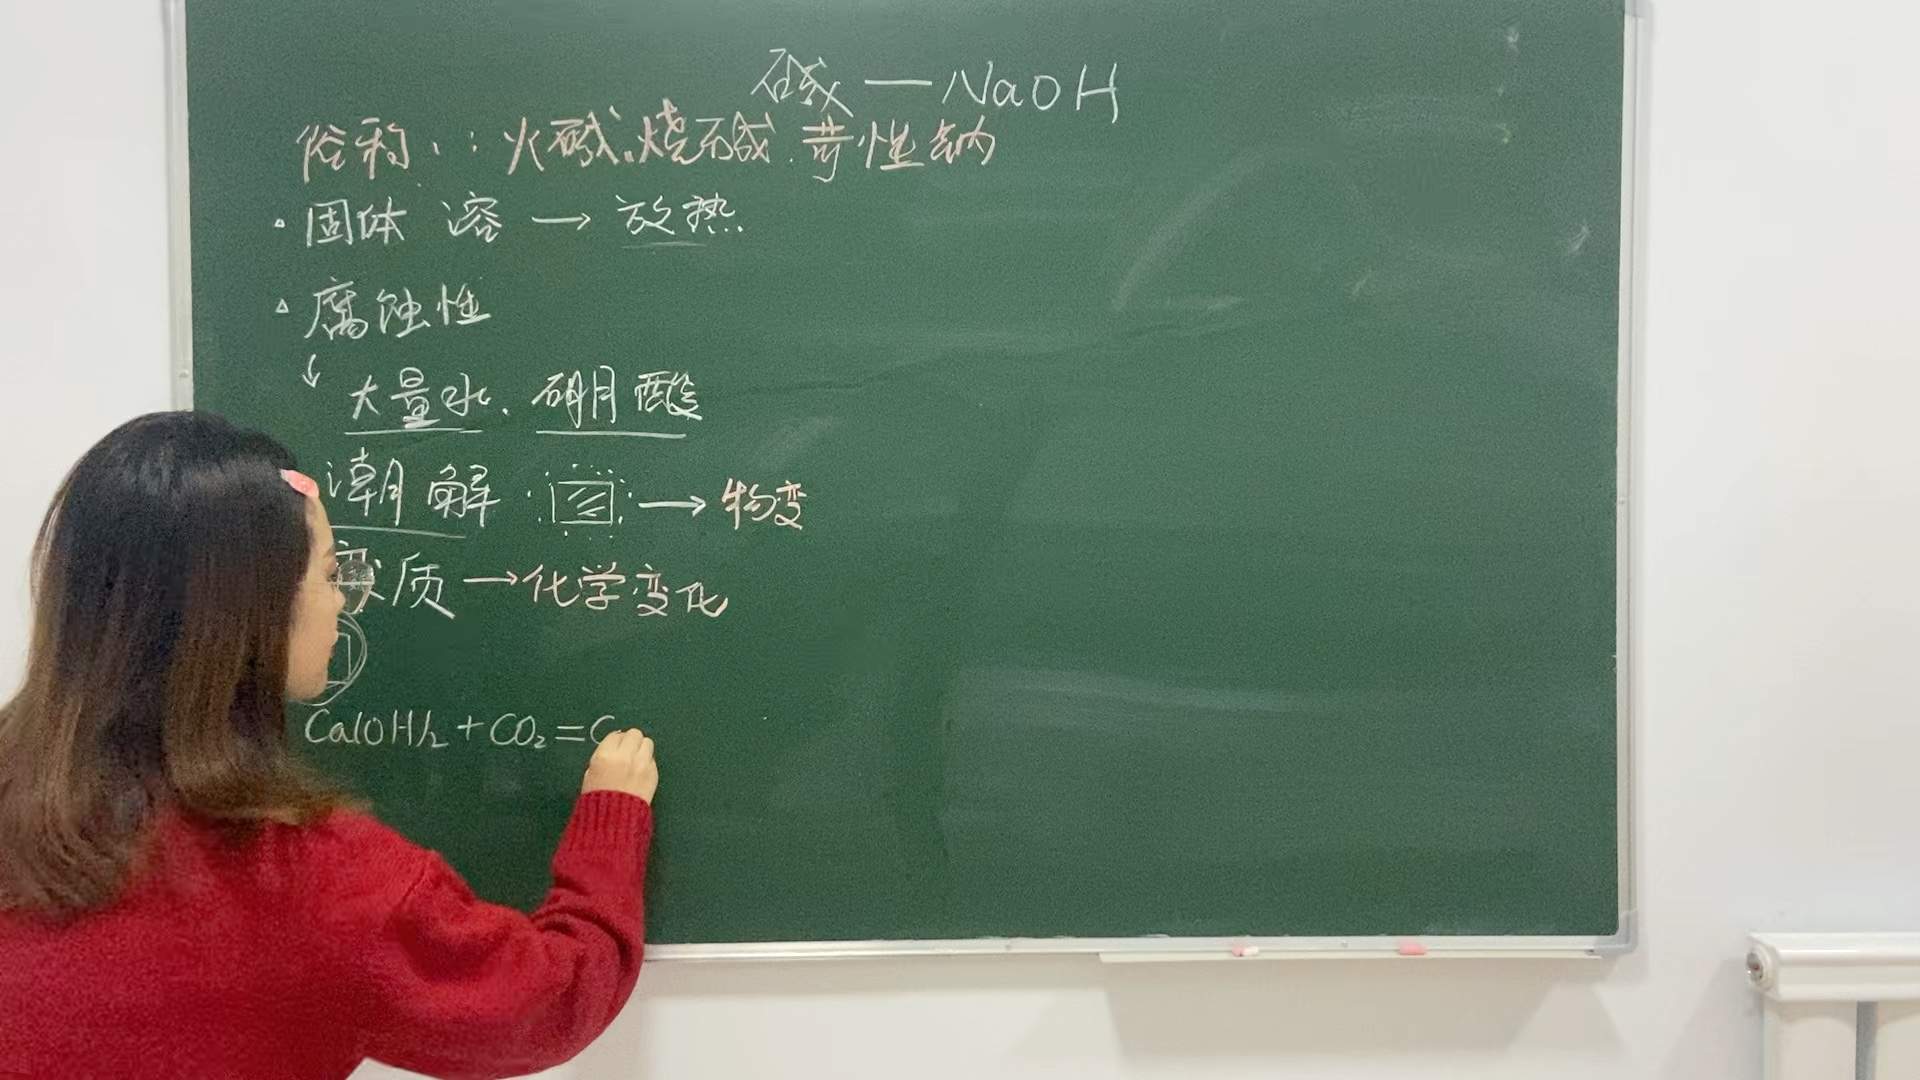 碱—NaOH
俗称：火碱、烧碱、苛性钠
固体 溶 → 放热
腐蚀性
↓
大量水、硼酸
潮解 → 物变
变质 → 化学变化
Ca(OH)₂ + CO₂ = C